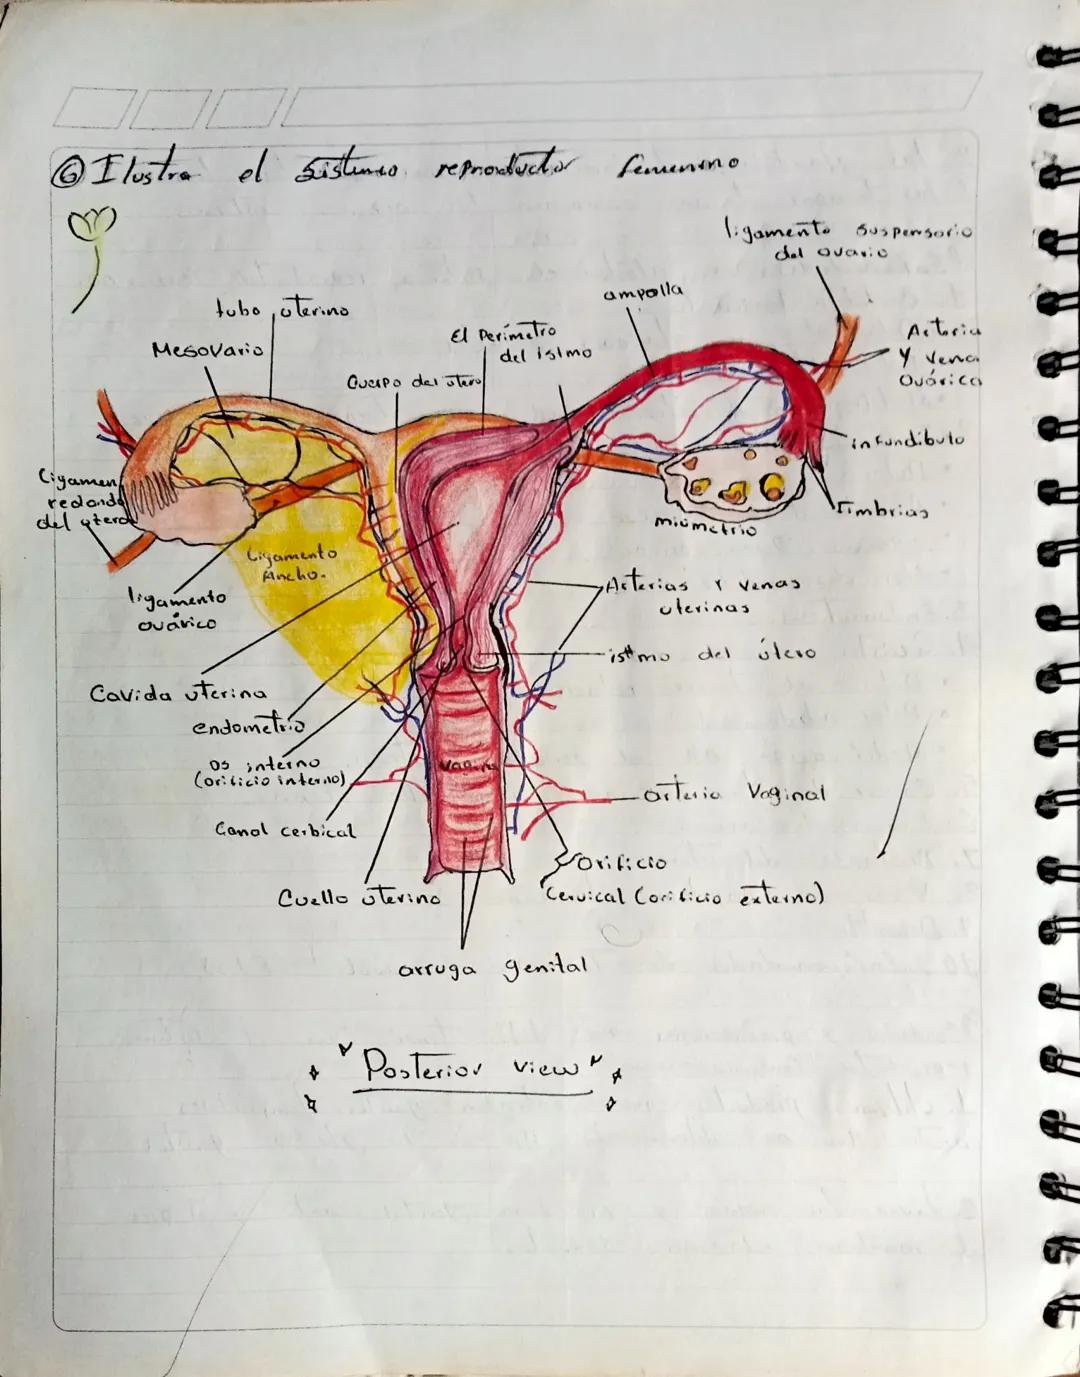 ⑥ Ilustra el sistema reproductor femenino
ligamento suspensorio
del ovario
ampolla
tubo uterino
El Perímetro
del istmo
Arteria
y vena
Ovárica
Mesovario
Cuerpo del utero
infundibulo
Ligamen
redondo
del utero
miometrio
Fimbrias
Ligamento
Ancho.
ligamento
ovárico
Arterias y venas
uterinas
istmo del útero
Cavida uterina
endometrio
os interno
(orificio interno)
vagina
arteria Vaginal
Canal cerbical
Orificio
Cervical (orificio externo)
Cuello uterino
arruga genital
"Posterior view"